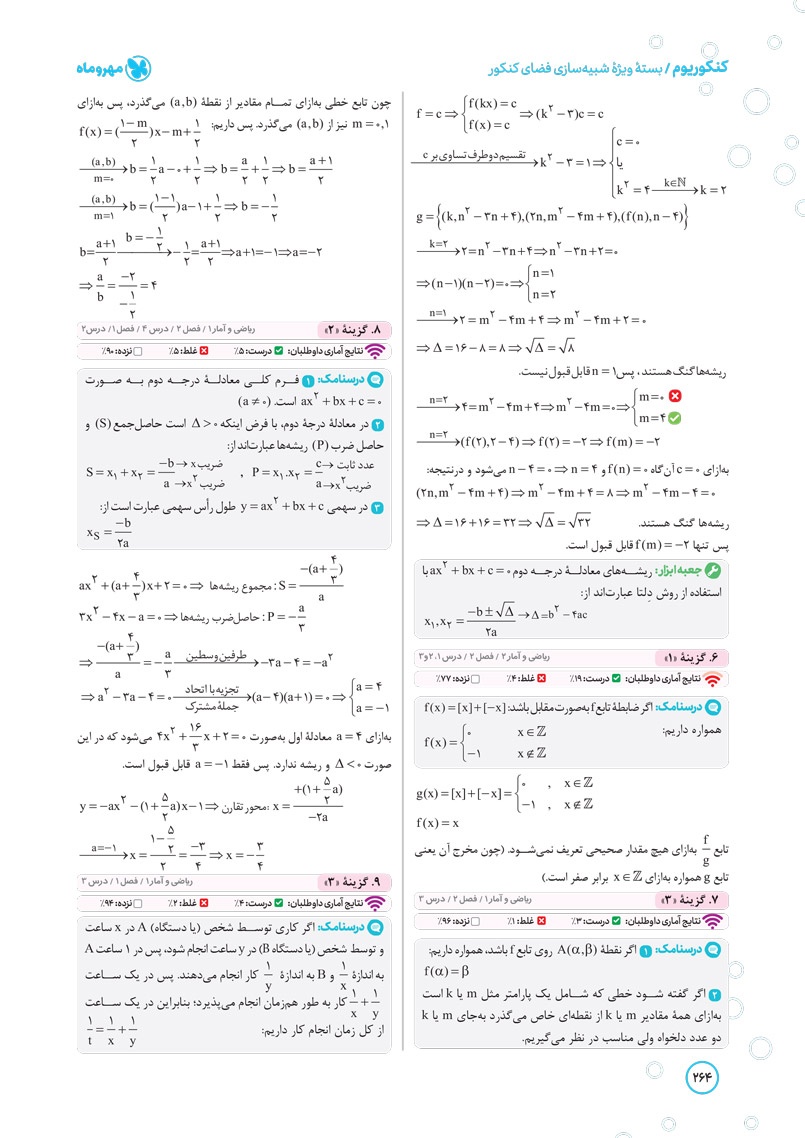 کنکوریوم / بستهٔ ویژهٔ شبیه‌سازی فضای کنکور
مهروماه
f = c ⇒ { f(kx) = c ; f(x) = c ⇒ (k² − ۳)c = c
تقسیم دو طرف تساوی بر c → k² − ۳ = ۱ ⇒ { c = ۰ یا k² = ۴ —k∈ℕ→ k = ۲
g = {(k, n² − ۳n + ۴), (۲n, m² − ۴m + ۴), (f(n), n − ۴)}
—k=۲→ ۲ = n² − ۳n + ۴ ⇒ n² − ۳n + ۲ = ۰
⇒ (n − ۱)(n − ۲) = ۰ ⇒ { n = ۱ ; n = ۲
—n=۱→ ۲ = m² − ۴m + ۴ ⇒ m² − ۴m + ۲ = ۰
⇒ Δ = ۱۶ − ۸ = ۸ ⇒ √Δ = √۸
ریشه‌ها گنگ هستند، پس n = ۱ قابل قبول نیست.
—n=۲→ ۴ = m² − ۴m + ۴ ⇒ m² − ۴m = ۰ ⇒ { m = ۰ ; m = ۴
—n=۲→ (f(۲), ۲ − ۴) ⇒ f(۲) = −۲ ⇒ f(m) = −۲
به‌ازای c = ۰ آن‌گاه f(n) = ۰ و n − ۴ = ۰ ⇒ n = ۴ می‌شود و درنتیجه:
(۲n, m² − ۴m + ۴) ⇒ m² − ۴m + ۴ = ۸ ⇒ m² − ۴m − ۴ = ۰
⇒ Δ = ۱۶ + ۱۶ = ۳۲ ⇒ √Δ = √۳۲ ریشه‌ها گنگ هستند.
پس تنها f(m) = −۲ قابل قبول است.
جعبه‌ابزار: ریشه‌های معادلهٔ درجه دوم ax² + bx + c = ۰ با
استفاده از روش دِلتا عبارت‌اند از:
x₁, x₂ = (−b ± √Δ)/۲a → Δ = b² − ۴ac
۶. گزینهٔ «۱» ریاضی و آمار ۲ / فصل ۲ / درس ۱، ۲ و ۳
نتایج آماری داوطلبان: درست: ۱۹٪ غلط: ۴٪ نزده: ۷۷٪
درسنامک: اگر ضابطهٔ تابع f به‌صورت مقابل باشد: f(x) = [x] + [−x]
همواره داریم: f(x) = { ۰ x ∈ ℤ ; −۱ x ∉ ℤ
g(x) = [x] + [−x] = { ۰ , x ∈ ℤ ; −۱ , x ∉ ℤ
f(x) = x
تابع f/g به‌ازای هیچ مقدار صحیحی تعریف نمی‌شود. (چون مخرج آن یعنی
تابع g همواره به‌ازای x ∈ ℤ برابر صفر است.)
۷. گزینهٔ «۳» ریاضی و آمار ۱ / فصل ۲ / درس ۳
نتایج آماری داوطلبان: درست: ۳٪ غلط: ۱٪ نزده: ۹۶٪
درسنامک: ۱ اگر نقطهٔ A(α, β) روی تابع f باشد، همواره داریم:
f(α) = β
۲ اگر گفته شود خطی که شامل یک پارامتر مثل m یا k است
به‌ازای همهٔ مقادیر m یا k از نقطه‌ای خاص می‌گذرد به‌جای m یا k
دو عدد دلخواه ولی مناسب در نظر می‌گیریم.
چون تابع خطی به‌ازای تمام مقادیر از نقطهٔ (a, b) می‌گذرد، پس به‌ازای
m = ۰, ۱ نیز از (a, b) می‌گذرد. پس داریم: f(x) = ((۱ − m)/۲)x − m + ۱/۲
—(a, b) m=۰→ b = (۱/۲)a − ۰ + ۱/۲ ⇒ b = a/۲ + ۱/۲ ⇒ b = (a + ۱)/۲
—(a, b) m=۱→ b = ((۱ − ۱)/۲)a − ۱ + ۱/۲ ⇒ b = −۱/۲
b = (a + ۱)/۲ —b = −۱/۲→ −۱/۲ = (a + ۱)/۲ ⇒ a + ۱ = −۱ ⇒ a = −۲
⇒ a/b = −۲/(−۱/۲) = ۴
۸. گزینهٔ «۲» ریاضی و آمار ۱ / فصل ۲ / درس ۴ / فصل ۱ / درس ۲
نتایج آماری داوطلبان: درست: ۵٪ غلط: ۵٪ نزده: ۹۰٪
درسنامک: ۱ فرم کلی معادلهٔ درجه دوم به صورت
ax² + bx + c = ۰ است. (a ≠ ۰)
۲ در معادلهٔ درجهٔ دوم، با فرض اینکه Δ > ۰ است حاصل‌جمع (S) و
حاصل ضرب (P) ریشه‌ها عبارت‌اند از:
S = x₁ + x₂ = −b → ضریب x / a → ضریب x² , P = x₁.x₂ = c → عدد ثابت / a → ضریب x²
۳ در سهمی y = ax² + bx + c طول رأس سهمی عبارت است از:
x_S = −b/۲a
ax² + (a + ۴/۳)x + ۲ = ۰ ⇒ مجموع ریشه‌ها : S = −(a + ۴/۳)/a
۳x² − ۴x − a = ۰ ⇒ حاصل‌ضرب ریشه‌ها : P = −a/۳
⇒ −(a + ۴/۳)/a = −a/۳ —طرفین وسطین→ −۳a − ۴ = −a²
⇒ a² − ۳a − ۴ = ۰ —تجزیه با اتحاد جملهٔ مشترک→ (a − ۴)(a + ۱) = ۰ ⇒ { a = ۴ ; a = −۱
به‌ازای a = ۴ معادلهٔ اول به‌صورت ۴x² + (۱۶/۳)x + ۲ = ۰ می‌شود که در این
صورت Δ < ۰ و ریشه ندارد. پس فقط a = −۱ قابل قبول است.
y = −ax² − (۱ + (۵/۲)a)x − ۱ ⇒ محور تقارن: x = +(۱ + (۵/۲)a)/−۲a
—a=−۱→ x = (۱ − ۵/۲)/۲ = −۳/۴ ⇒ x = −۳/۴
۹. گزینهٔ «۳» ریاضی و آمار ۱ / فصل ۱ / درس ۳
نتایج آماری داوطلبان: درست: ۴٪ غلط: ۲٪ نزده: ۹۴٪
درسنامک: اگر کاری توسط شخص (یا دستگاه) A در x ساعت
و توسط شخص (یا دستگاه B) در y ساعت انجام شود، پس در ۱ ساعت A
به اندازهٔ ۱/x و B به اندازهٔ ۱/y کار انجام می‌دهند. پس در یک ساعت
۱/x + ۱/y کار به طور هم‌زمان انجام می‌پذیرد؛ بنابراین در یک ساعت
از کل زمان انجام کار داریم: ۱/t = ۱/x + ۱/y
۲۶۴